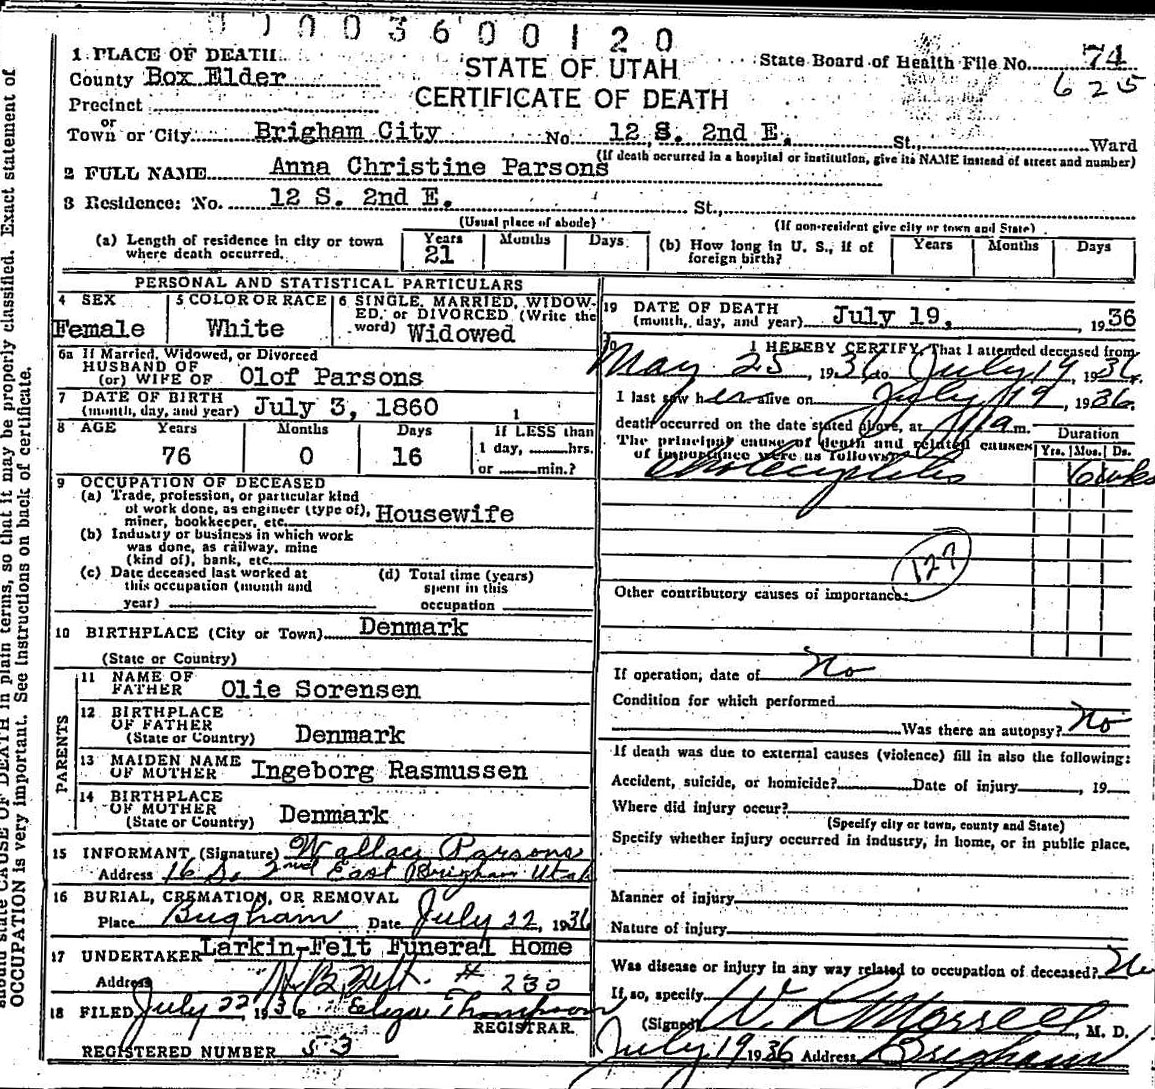 003600120
1 PLACE OF DEATH
STATE OF UTAH
State Board of Health File No. 74
County Box Elder
625
CERTIFICATE OF DEATH
Precinct
or
Town or City Brigham City No. 12 S. 2nd E. St., Ward
(If death occurred in a hospital or institution, give its NAME instead of street and number)
2 FULL NAME Anna Christine Parsons
3 Residence: No. 12 S. 2nd E. St.,
(Usual place of abode) (If non-resident give city or town and State)
(a) Length of residence in city or town where death occurred. Years 21 Months Days
(b) How long in U. S., if of foreign birth? Years Months Days
PERSONAL AND STATISTICAL PARTICULARS
4 SEX Female
5 COLOR OR RACE White
6 SINGLE, MARRIED, WIDOWED, or DIVORCED (Write the word) Widowed
6a If Married, Widowed, or Divorced
HUSBAND OF
(or) WIFE OF Olof Parsons
7 DATE OF BIRTH
(month, day, and year) July 3, 1860 1
8 AGE Years Months Days If LESS than
76 0 16 1 day, hrs.
or min.?
9 OCCUPATION OF DECEASED
(a) Trade, profession, or particular kind
of work done, as engineer (type of),
miner, bookkeeper, etc. Housewife
(b) Industry or business in which work
was done, as railway, mine
(kind of), bank, etc.
(c) Date deceased last worked at
this occupation (month and
year)
(d) Total time (years)
spent in this
occupation
10 BIRTHPLACE (City or Town) Denmark
(State or Country)
PARENTS
11 NAME OF
FATHER Olie Sorensen
12 BIRTHPLACE
OF FATHER
(State or Country) Denmark
13 MAIDEN NAME
OF MOTHER Ingeborg Rasmussen
14 BIRTHPLACE
OF MOTHER
(State or Country) Denmark
15 INFORMANT (Signature) Wallace Parsons
Address 16 So. 2nd East Brigham Utah
16 BURIAL, CREMATION, OR REMOVAL
Place Brigham Date July 22, 1936
17 UNDERTAKER Larkin-Felt Funeral Home
Address H. B. Felt. # 230
18 FILED July 22, 1936 Thompson
REGISTRAR.
REGISTERED NUMBER 53
19 DATE OF DEATH
(month, day, and year) July 19, , 1936
20 I HEREBY CERTIFY, That I attended deceased from
May 25, 1936 to July 19, 1936.
I last saw her alive on July 19, 1936.
death occurred on the date stated above, at a m.
The principal cause of death and related causes
of importance were as follows:
Duration
Yrs. Mos. Ds.
Cholecystitis 6 wks
127
Other contributory causes of importance:
If operation, date of No
Condition for which performed
Was there an autopsy? No
If death was due to external causes (violence) fill in also the following:
Accident, suicide, or homicide? Date of injury , 19
Where did injury occur?
(Specify city or town, county and State)
Specify whether injury occurred in industry, in home, or in public place.
Manner of injury
Nature of injury
Was disease or injury in any way related to occupation of deceased? No
If so, specify
(Signed) W. R. Morrell, M. D.
July 19 1936 Address Brigham
should state CAUSE OF DEATH in plain terms, so that it may be properly classified. Exact statement of
OCCUPATION is very important. See instructions on back of certificate.